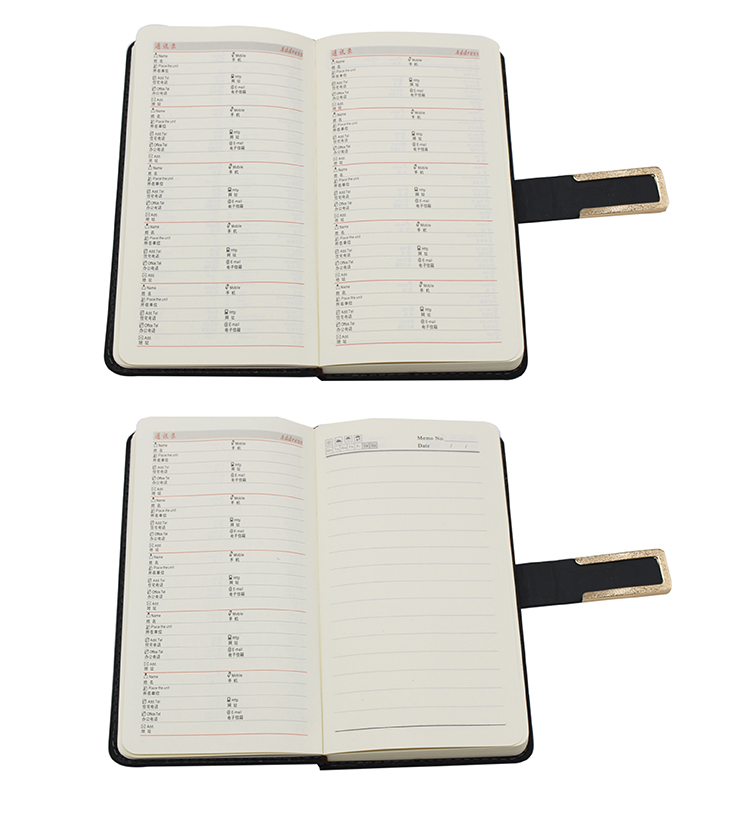 通讯录 Address
Name Mobile
姓 名 手 机
Place the unit
所在单位
Add.Tel Http
住宅电话 网 址
Office.Tel E-mail
办公电话 电子信箱
Add
地 址
Name Mobile
姓 名 手 机
Place the unit
所在单位
Add.Tel Http
住宅电话 网 址
Office.Tel E-mail
办公电话 电子信箱
Add
地 址
Name Mobile
姓 名 手 机
Place the unit
所在单位
Add.Tel Http
住宅电话 网 址
Office.Tel E-mail
办公电话 电子信箱
Add
地 址
Name Mobile
姓 名 手 机
Place the unit
所在单位
Add.Tel Http
住宅电话 网 址
Office.Tel E-mail
办公电话 电子信箱
Add
地 址
Name Mobile
姓 名 手 机
Place the unit
所在单位
Add.Tel Http
住宅电话 网 址
Office.Tel E-mail
办公电话 电子信箱
Add
地 址
通讯录 Address
Name Mobile
姓 名 手 机
Place the unit
所在单位
Add.Tel Http
住宅电话 网 址
Office.Tel E-mail
办公电话 电子信箱
Add
地 址
Name Mobile
姓 名 手 机
Place the unit
所在单位
Add.Tel Http
住宅电话 网 址
Office.Tel E-mail
办公电话 电子信箱
Add
地 址
Name Mobile
姓 名 手 机
Place the unit
所在单位
Add.Tel Http
住宅电话 网 址
Office.Tel E-mail
办公电话 电子信箱
Add
地 址
Name Mobile
姓 名 手 机
Place the unit
所在单位
Add.Tel Http
住宅电话 网 址
Office.Tel E-mail
办公电话 电子信箱
Add
地 址
Name Mobile
姓 名 手 机
Place the unit
所在单位
Add.Tel Http
住宅电话 网 址
Office.Tel E-mail
办公电话 电子信箱
Add
地 址
通讯录 Address
Name Mobile
姓 名 手 机
Place the unit
所在单位
Add.Tel Http
住宅电话 网 址
Office.Tel E-mail
办公电话 电子信箱
Add
地 址
Name Mobile
姓 名 手 机
Place the unit
所在单位
Add.Tel Http
住宅电话 网 址
Office.Tel E-mail
办公电话 电子信箱
Add
地 址
Name Mobile
姓 名 手 机
Place the unit
所在单位
Add.Tel Http
住宅电话 网 址
Office.Tel E-mail
办公电话 电子信箱
Add
地 址
Name Mobile
姓 名 手 机
Place the unit
所在单位
Add.Tel Http
住宅电话 网 址
Office.Tel E-mail
办公电话 电子信箱
Add
地 址
Name Mobile
姓 名 手 机
Place the unit
所在单位
Add.Tel Http
住宅电话 网 址
Office.Tel E-mail
办公电话 电子信箱
Add
地 址
Memo No.
Date / /